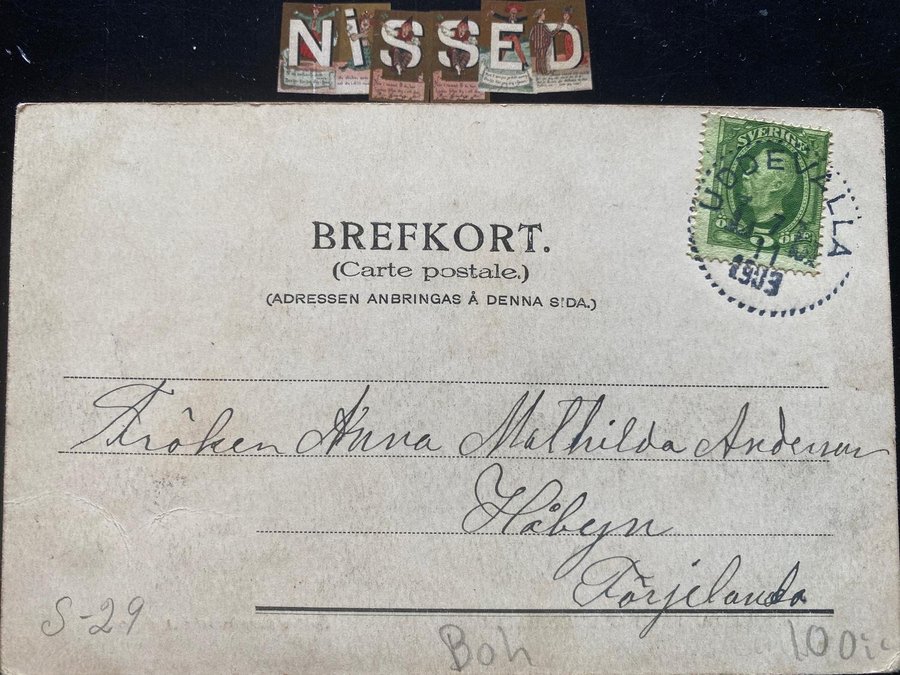 NISSED
SVERIGE
5
UDDEVALLA
1903
BREFKORT.
(Carte postale.)
(ADRESSEN ANBRINGAS Å DENNA SIDA.)
Fröken Anna Mathilda Anderson
Håbyn
Förjelanda
S-29
Boh